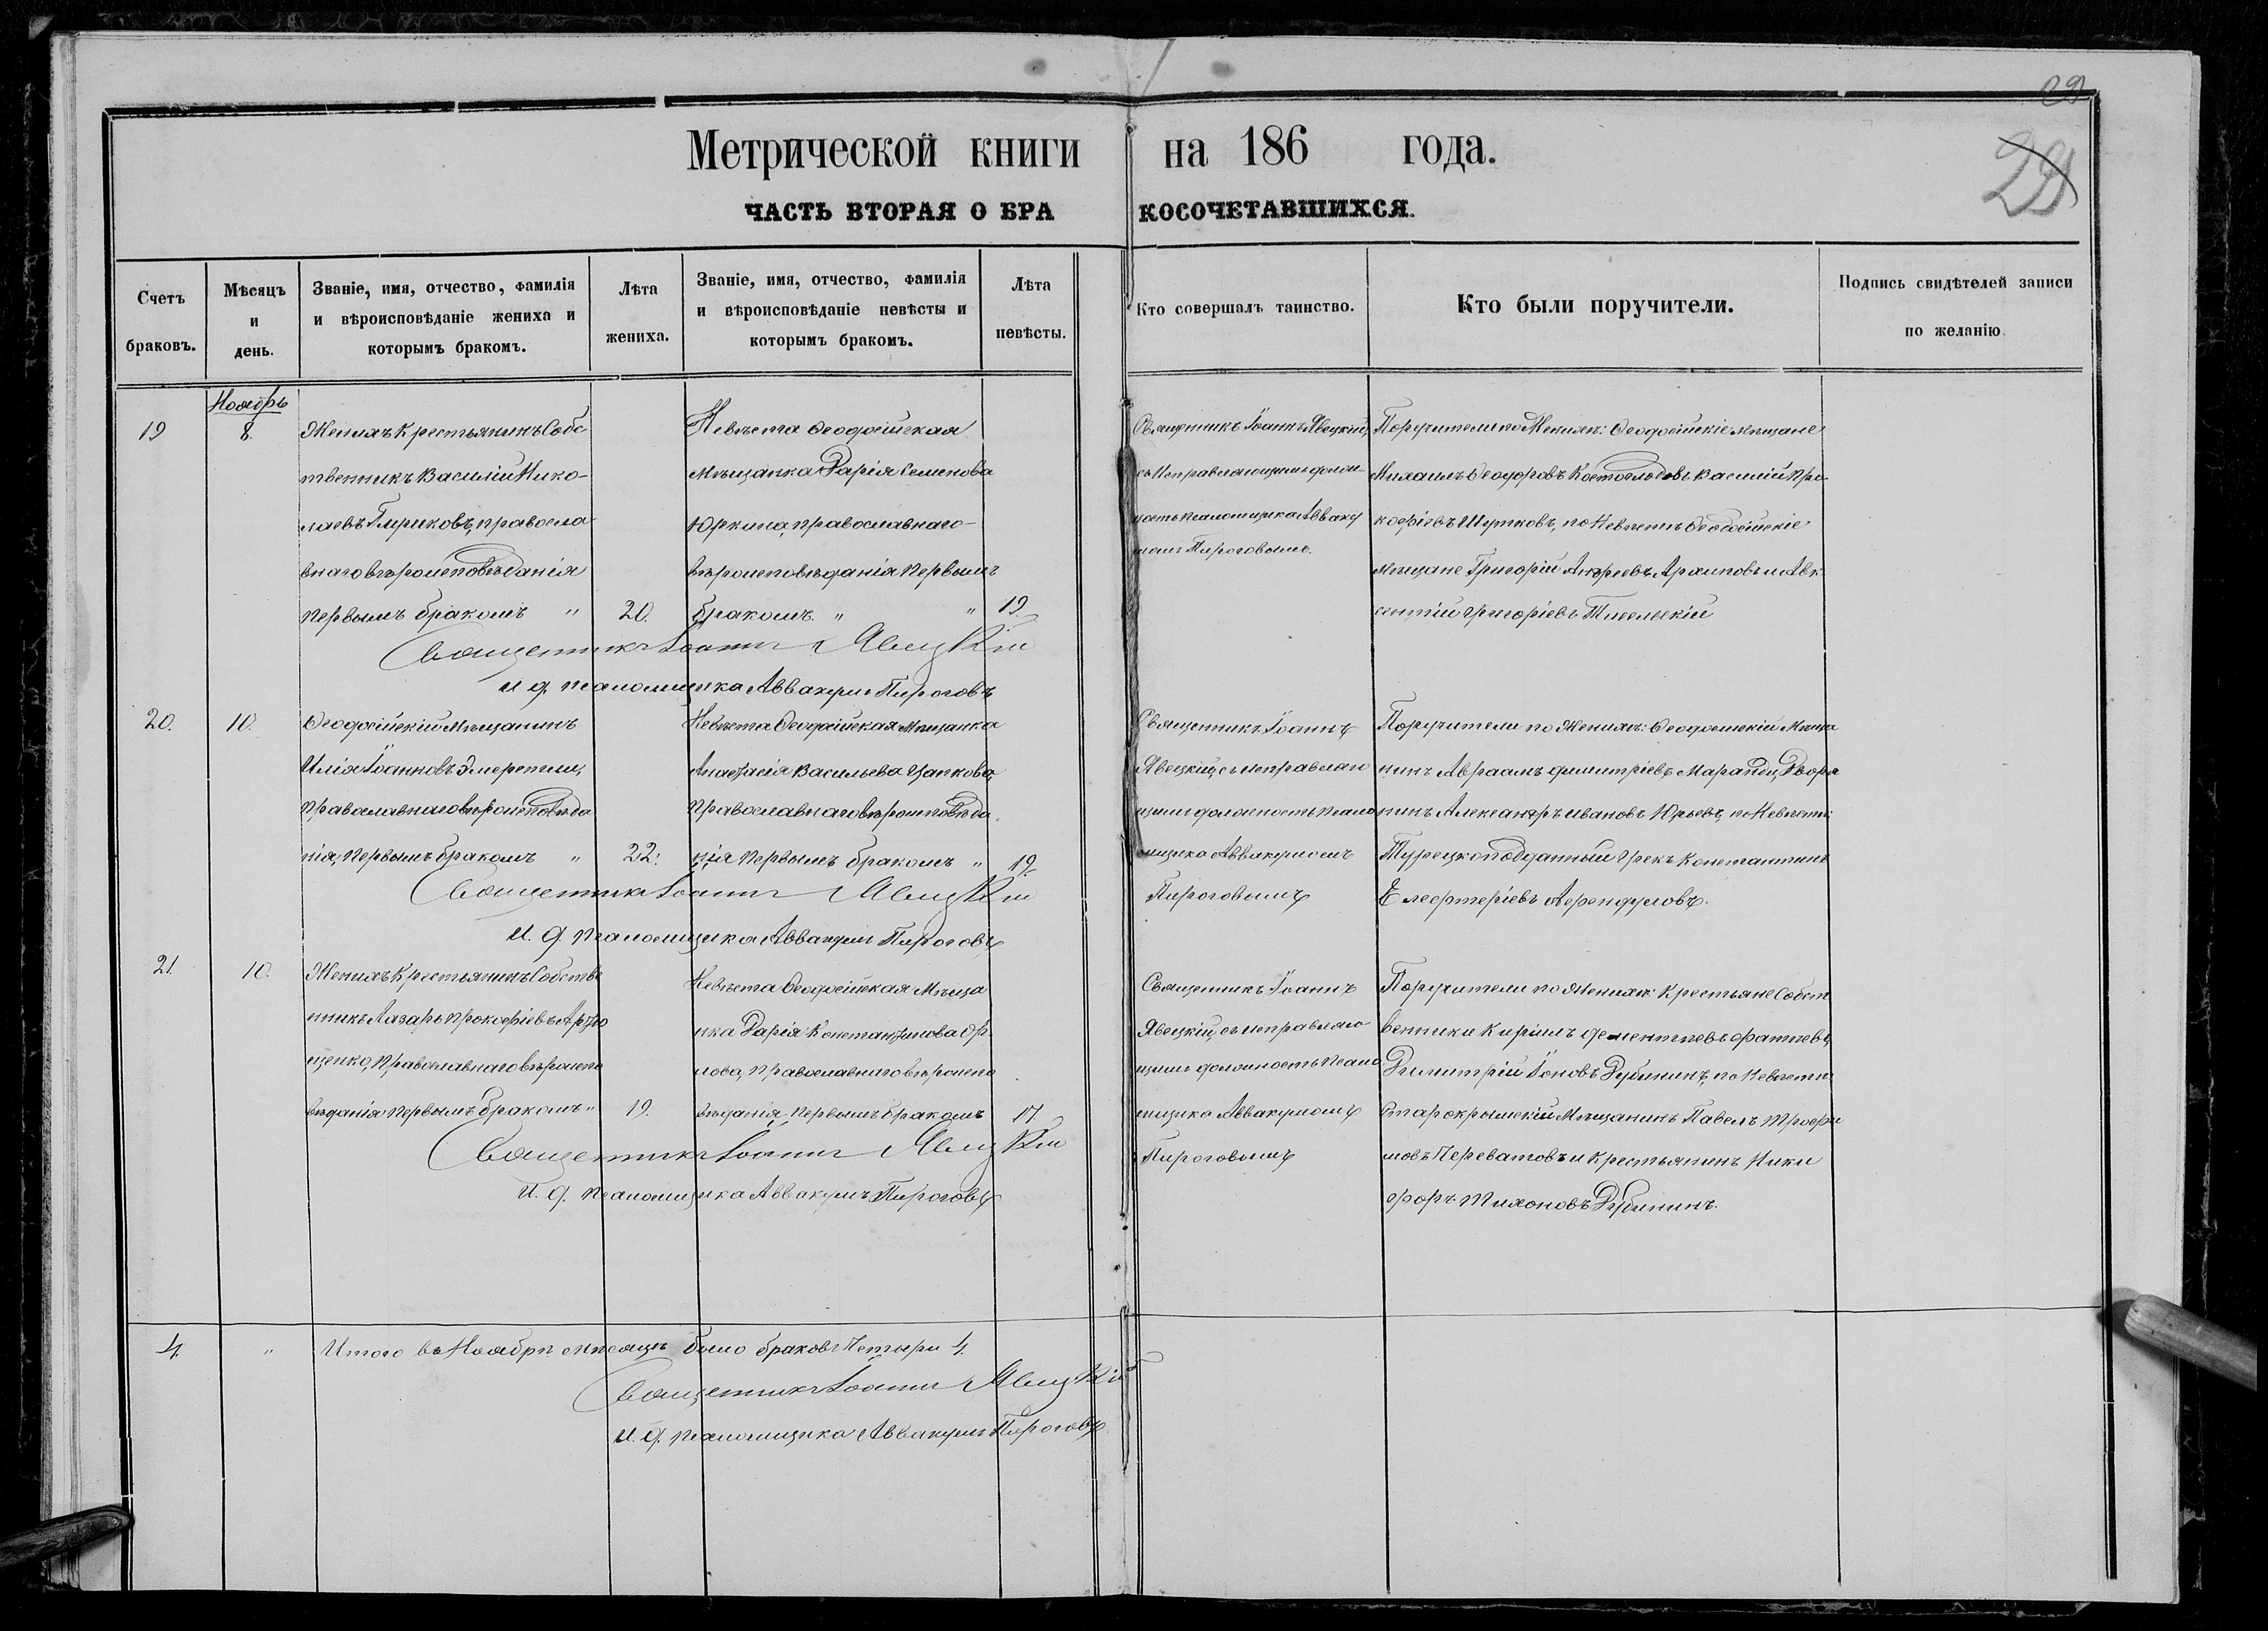 29
29
Метрической книги на 186 года.
ЧАСТЬ ВТОРАЯ О БРАКОСОЧЕТАВШИХСЯ.
Счетъ браковъ.
Мѣсяцъ и день.
Званіе, имя, отчество, фамилія
и вѣроисповѣданіе жениха и
которымъ бракомъ.
Лѣта
жениха.
Званіе, имя, отчество, фамилія
и вѣроисповѣданіе невѣсты и
которымъ бракомъ.
Лѣта
невѣсты.
Кто совершалъ таинство.
Кто были поручители.
Подпись свидѣтелей записи
по желанію
Ноябрь
19
8.
Женихъ Крестьянинъ Собс
твенникъ Василій Нико-
лаевъ правосла
внаго вѣроисповѣданія
первымъ бракомъ "
20.
Невѣста Ѳеодосійская
Мѣщанка Дарія Семенова
Юркина, православнаго-
вѣроисповѣданія первымъ
бракомъ. " "
19.
Священникъ Іоаннъ Явецкій,
съ Исправляющимъ долж-
ность псаломщика Авваку
момъ Пироговымъ.
Поручители по Женихѣ: Ѳеодосійскіе мѣщане
Михаилъ Ѳеодоровъ Костоглодовъ Василій Про
кофіевъ Шутковъ, по Невѣстѣ Ѳеодосійскіе
мѣщане Григорій Андреевъ Архиповъ и Авк
сентій Григоріевъ
Священникъ Іоаннъ Явецкій
И д. псаломщика Аввакумъ Пироговъ
20.
10.
Ѳеодосійскій Мѣщанинъ
Илія Іоанновъ Эмерецли,
православнаго вѣроисповѣда
нія, первымъ бракомъ "
22.
Невѣста Ѳеодосійская Мѣщанка
Анастасія Васильева Цапкова
православнаго вѣроисповѣда
нія первымъ бракомъ "
19.
Священникъ Іоаннъ
Явецкій, съ исправляю
щимъ должность псало
мщика Аввакумомъ
Пироговымъ
Поручители по Женихѣ: Ѳеодосійскій Мѣща
нинъ Авраамъ Димитріевъ Дворя
нинъ Александръ Ивановъ Юрьевъ, по Невѣстѣ:
Турецкоподданный Грекъ Константинъ
Елефтеріевъ
Священникъ Іоаннъ Явецкій
И. д. псаломщика Аввакумъ Пироговъ
21.
10.
Женихъ Крестьянинъ Собстве
нникъ Лазарь Прокофіевъ Артю
щенко, православнаго вѣроиспо
вѣданія первымъ бракомъ "
19.
Невѣста Ѳеодосійская Мѣща
нка Дарія Константинова Ор
лова, православнаго вѣроиспо
вѣданія, первымъ бракомъ
17
Священникъ Іоаннъ
Явецкій, съ исправляю
щимъ должность псало
мщика Аввакумомъ
Пироговымъ
Поручители по Женихѣ: Крестьяне Собст
венники Кирилъ Дементіевъ
Димитрій Іоновъ Дубининъ, по Невѣстѣ
Старокрымскій Мѣщанинъ Павелъ Трофи
мовъ Переватовъ и Крестьянинъ Ники
форъ Тихоновъ Дубининъ.
Священникъ Іоаннъ Явецкій
И. д. псаломщика Аввакумъ Пироговъ
4.
"
Итого въ Ноябрѣ мѣсяцѣ было браковъ Четыри 4.
Священникъ Іоаннъ Явецкій
И. д. псаломщика Аввакумъ Пироговъ